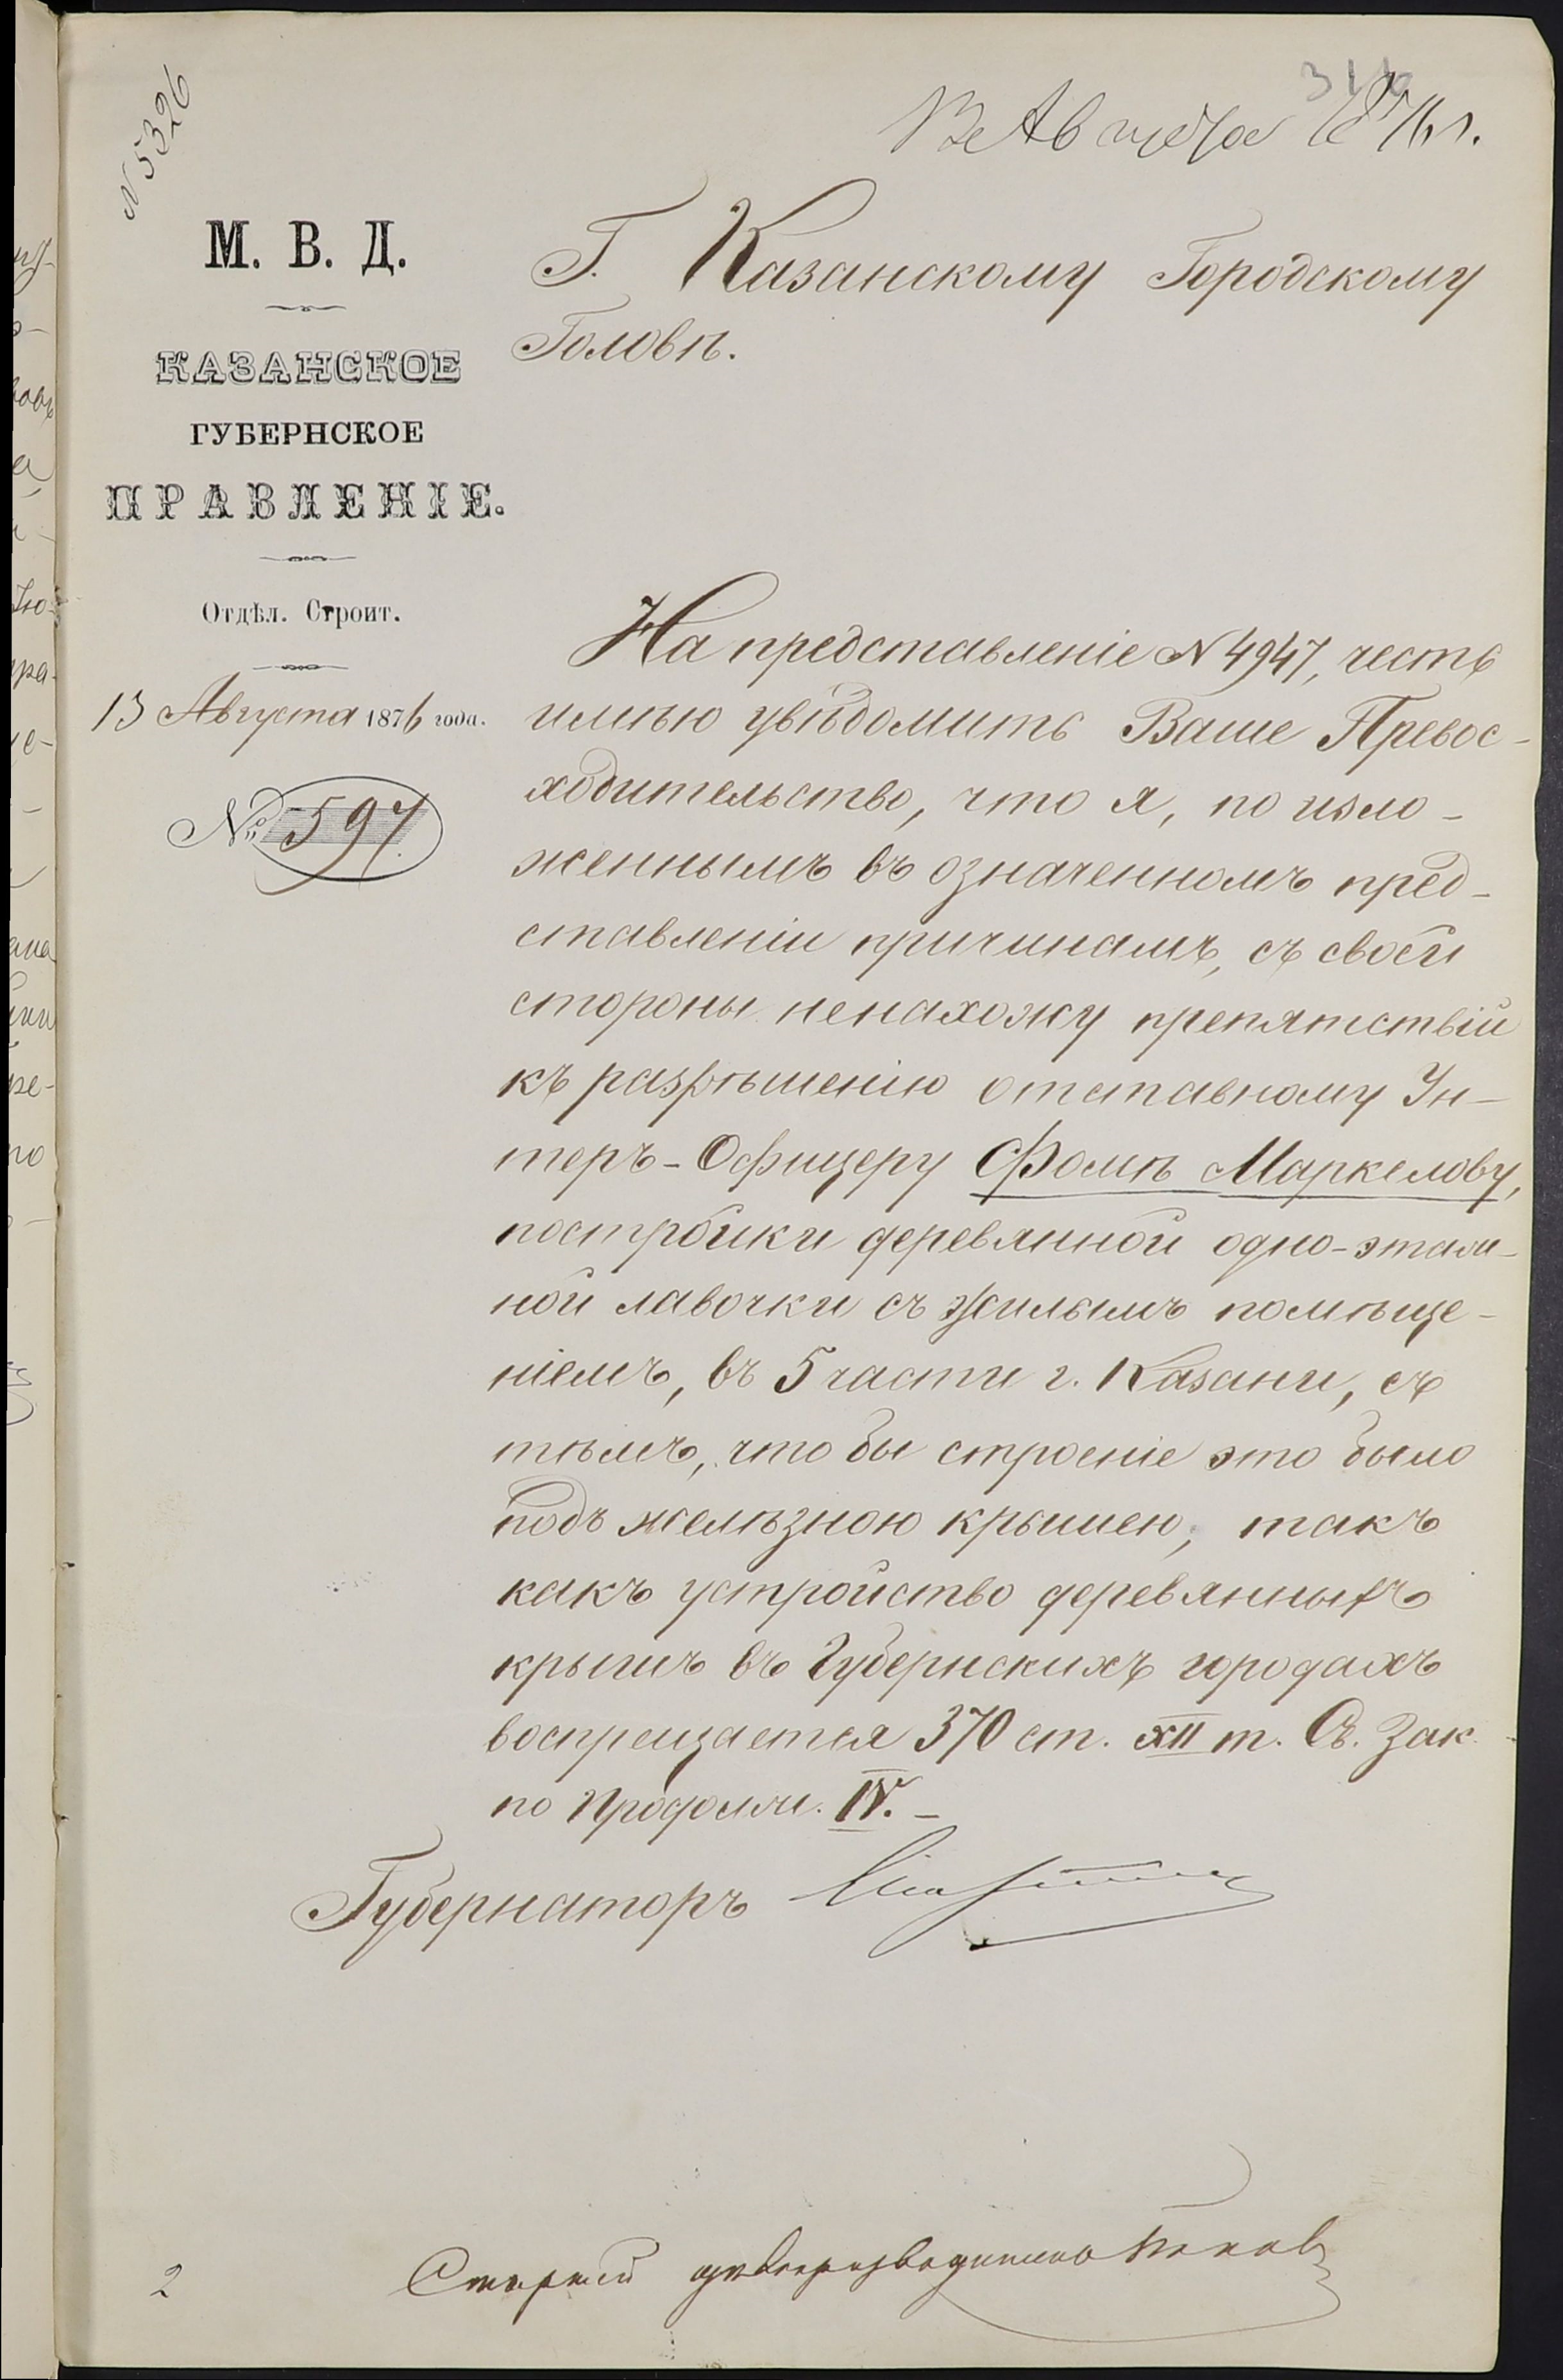 N 5326
Августа 1876 г.
М. В. Д.
КАЗАНСКОЕ
ГУБЕРНСКОЕ
ПРАВЛЕНІЕ.
Отдѣл. Строит.
13 Августа 1876 года.
№ 597
Г. Казанскому Городскому
Головѣ.
На представленіе N 4947, честь
имѣю увѣдомить Ваше Превос-
ходительство, что я, по изло-
женнымъ въ означенномъ пред-
ставленіи причинамъ, съ своей
стороны ненахожу препятствій
къ разрѣшенію отставному Ун-
теръ-Офицеру Фомѣ Маркелову,
постройки деревянной одно-этаж-
ной лавочки съ жилымъ помѣще-
ніемъ, въ 5 части г. Казани, съ
тѣмъ, что бы строеніе это было
подъ желѣзною крышею, такъ
какъ устройство деревянныхъ
крышъ въ Губернскихъ городахъ
воспрещается 370 ст. XII т. Св. Зак.
по Продолж. IV. –
Губернаторъ
Старшій дѣлопроизводитель
2